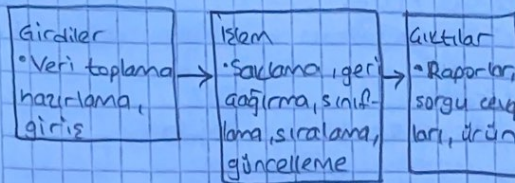 Girdiler
• Veri toplama
hazırlama,
giriş
İşlem
• Saklama, geri
çağırma, sınıf-
lama, sıralama,
güncelleme
Çıktılar
• Raporlar,
sorgu ceva
ları, ürün